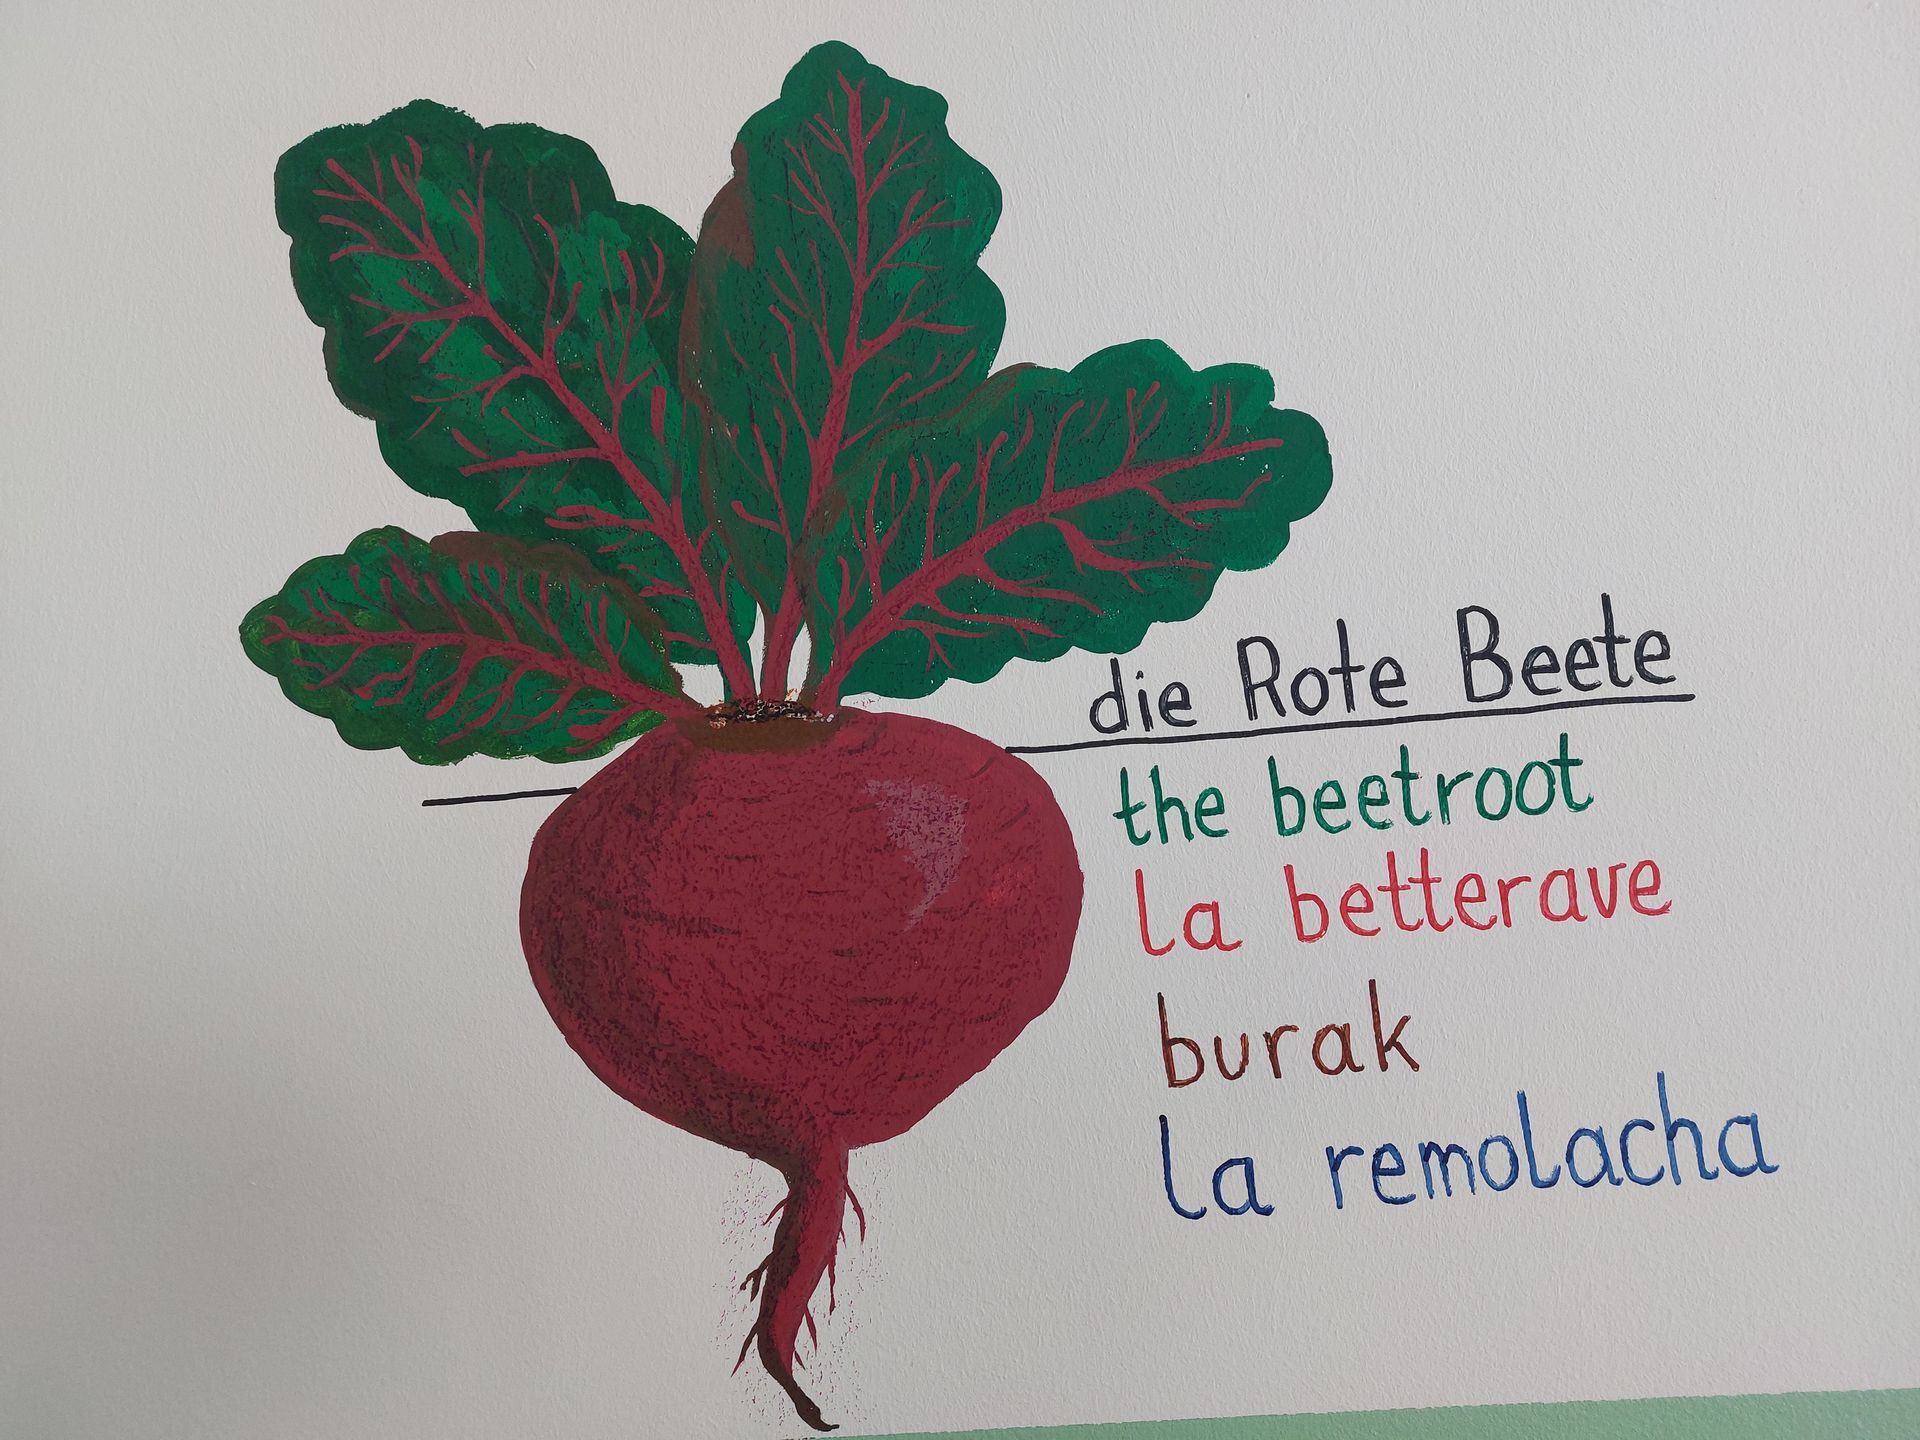 die Rote Beete
the beetroot
la betterave
burak
la remolacha